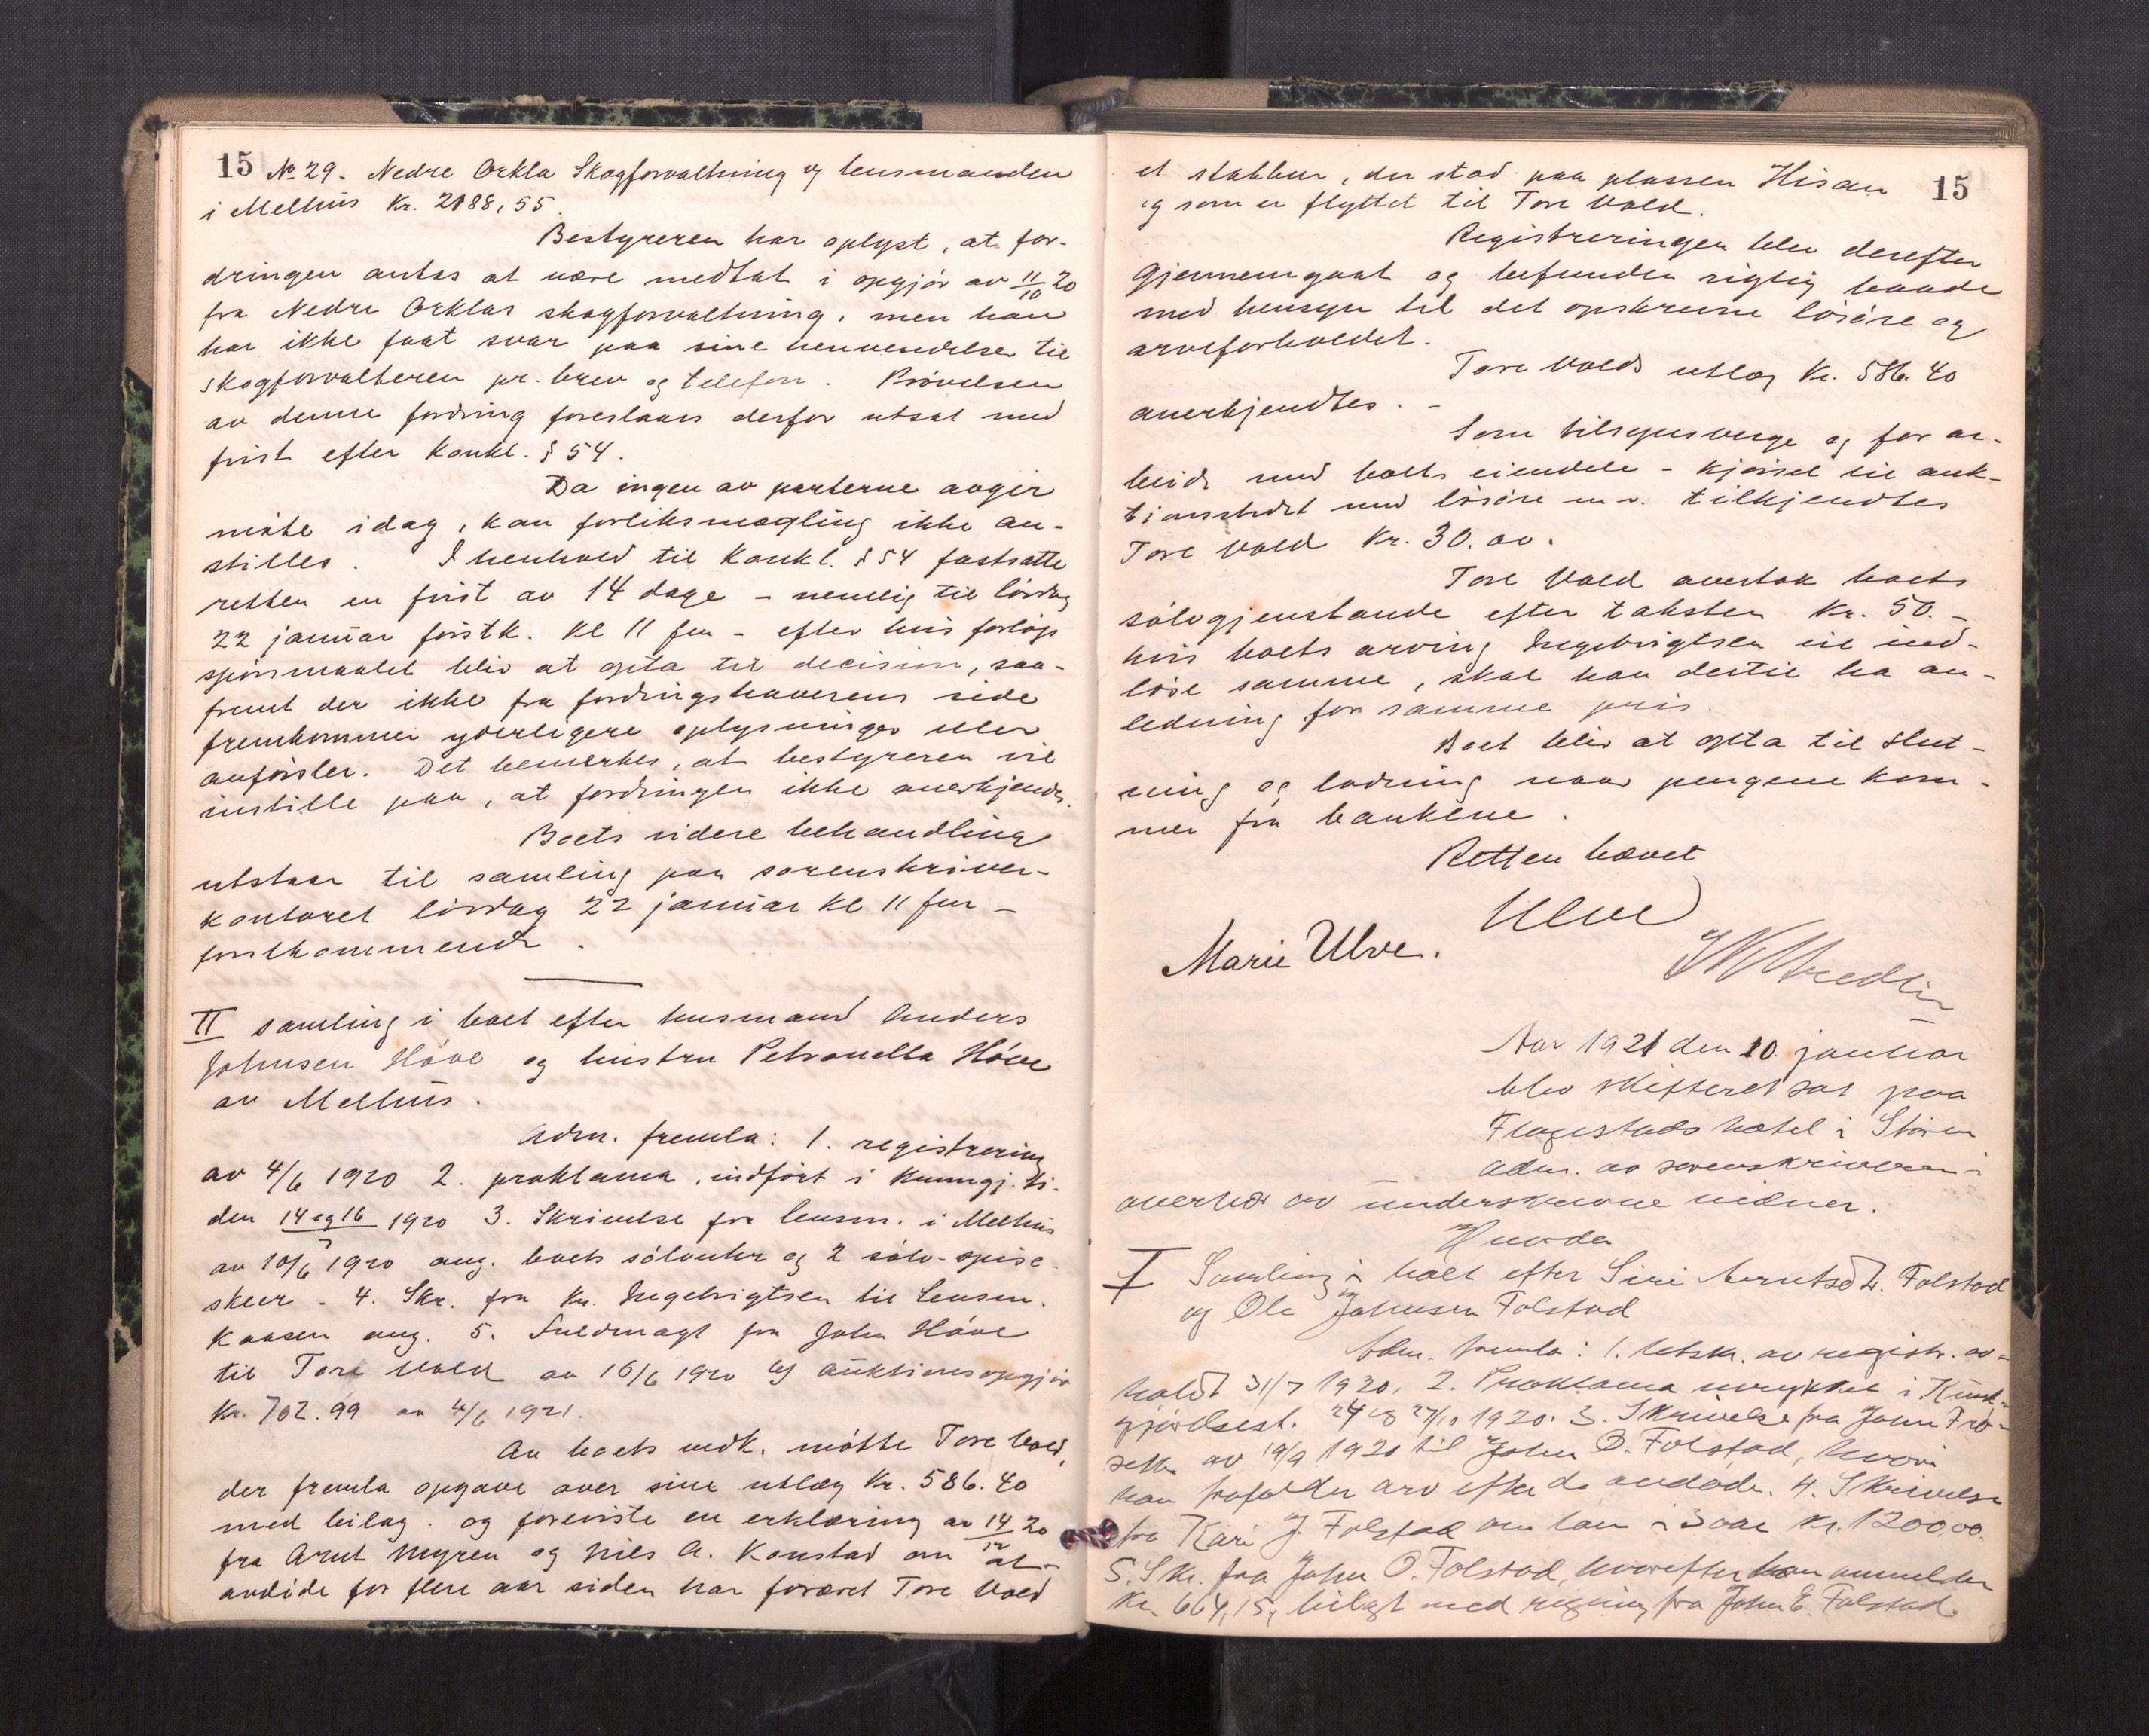 15 No 29. Nedre Orkla Skogforvaltning og lensmanden
i Melhus Kr. 2188,55.
Bestyreren har oplyst, at for-
dringen antas at være medtat i opgjör av 11/10 20
fra Nedre Orklas skogforvaltning, men han
har ikke faat svar paa sine henvendelser til
skogforvalteren pr. brev og telefon. Prövelsen
av denne fordring foreslaaes derfor utsat med
frist efter Konkl. § 54.
Da ingen av parterne avgir
möte idag, kan forliksmægling ikke an-
stilles. I henhold til Konkl. § 54 fastsatte
retten en frist av 14 dage - nemlig til lördag
22 januar förstk. Kl 11 fm - efter hvis forlöp
spörsmaalet blir at opta til decision, saa-
fremt der ikke fra fordringshaverens side
fremkommer yderligere oplysninger eller
anförsler. Det bemerkes, at bestyreren vil
instille paa, at fordringen ikke anerkjendes.
Boets videre behandling
utstaar til samling paa sorenskriver-
kontoret lördag 22 januar kl 11 fm -
förstkommende.
II samling i boet efter husmand Anders
Johnsen Höve og hustru Petronella Höve
av Melhus.
Adm. fremla: 1. registrering
av 4/6 1920 2. proklama, indfört i Kunngj. ti-
den 14 og 16/7 1920 3. Skrivelse fra lensm. i Melhus
av 10/6 1920 ang. boets sölvuhr og 2 sölv-spise-
skeer. 4. Skr. fra Kr. Ingebrigtsen til Lensm.
Kaasen ang. 5. Fuldmagt fra John Höve
til Tore Vold av 16/6 1920 6) auktionsopgjör
Kr. 702.99 av 4/6 1921.
Av boets vedk. mötte Tore Vold,
der fremla opgave over sine utlæg Kr. 586.40
med bilag. og foreviste en erklæring av 14/12 20
fra Arnt Myren og Nils A. Konstad om at
avdöde for flere aar siden har foræret Tore Vold
et stabbur, der stod paa plassen Hisan 15
og som er flyttet til Tore Vold.
Registreringen blev derefter
gjennemgaat og befunden rigtig baade
med hensyn til det opskrevne lösöre og
arveforholdet.
Tore Volds utlæg Kr. 586.40
anerkjendtes. -
Som tilsynsverge og for ar-
beide med boets eiendele - kjörsel til auk-
tionsstedet med lösöre m.v. tilkjendtes
Tore Vold Kr. 30.00.
Tore Vold overtok boets
sölvgjenstande efter taksten Kr. 50.-
hvis boets arving Ingebrigtsen vil ind-
löse samme, skal han dertil ha an-
ledning for samme pris.
Boet blir at opta til slut-
ning og lodning naar pengene kom-
mer fra bankene.
Retten hævet
Ulve
Marie Ulve.
Aar 1921 den 10. januar
blev skifteret sat paa
Flagestads hotel i Stören
adm. av sorenskriveren i
overvær av underskrevne vidner.
Hvorda
I Samling i boet efter Siri Arntsdt. Folstad
og Ole Johnsen Folstad
Adm. fremla: 1. Utskr. av registr. av-
holdt 31/7 1920, 2. Proklama indrykket i Kund-
gjörelsest. 24 og 27/10 1920. 3. Skrivelse fra John Frö-
seth av 19/9 1920 til John O. Folstad, hvori
han frafalder arv efter de avdöde. 4. Skrivelse
fra Kari J. Folstad om laan i 3 aar Kr. 1200,00.
5. Skr. fra John O. Folstad, hvorefter han anmelder
Kr. 664,15, bilagt med regning fra John E. Folstad.